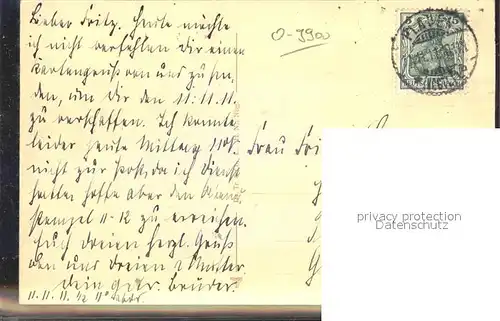 Lieber Fritz. Heute möchte
ich nicht verfehlen Dir einen
Kartengruß von uns zu sen,
den, um Dir den 11.11.11.
zu verschaffen. Ich konnte
leider heute Mittag 11 Uhr
nicht zur Post, da ich Dienst
hatte, hoffe aber den
stempel 11-12 zu erreichen.
Euch dreien herzl. Gruß
von uns dreien & Mutter.
Dein getr. Bruder.
11.11.11. ½ 11
0-3900
Frau
privacy protection
Datenschutz